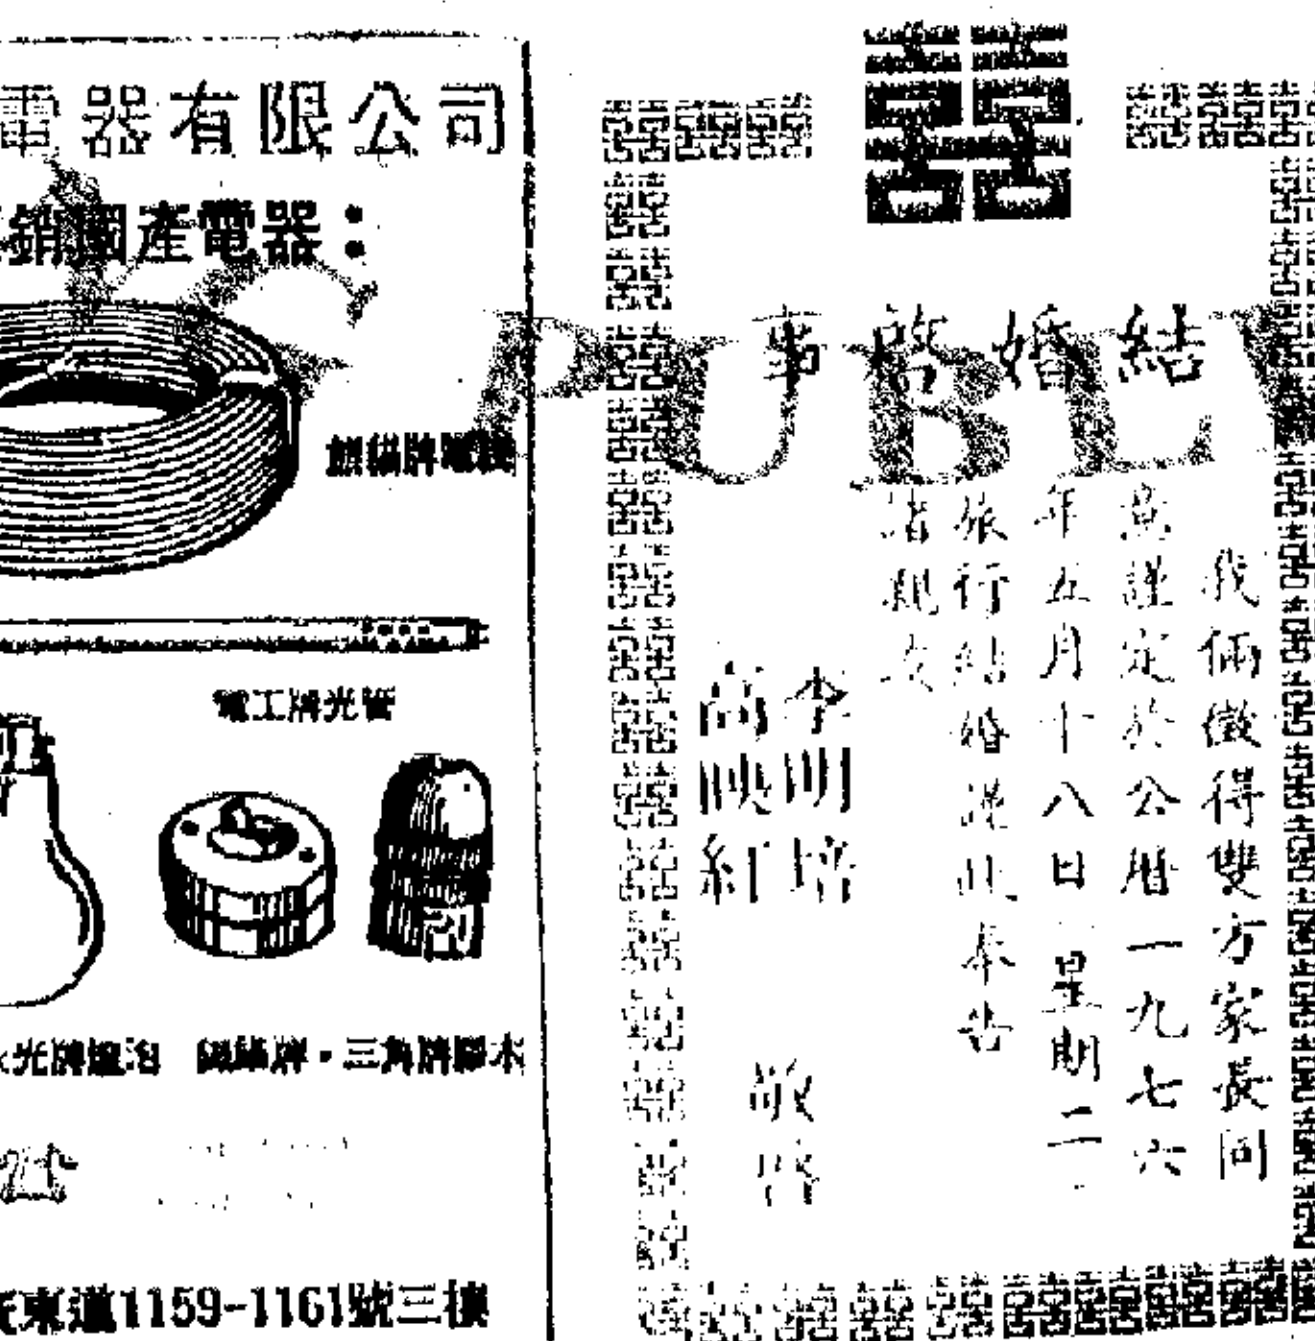 電器有限公司
銷國產電器：
熊貓牌電線
電工牌光管
光牌燈泡
三角牌膠木
東道1159-1161號三樓
囍
結婚啓事
我倆徵得雙方家長同
意謹定於公曆一九七六
年五月十八日（星期二）
旅行結婚謹此奉告
諸親友
李明培
高映紅
敬啓
PUBLI